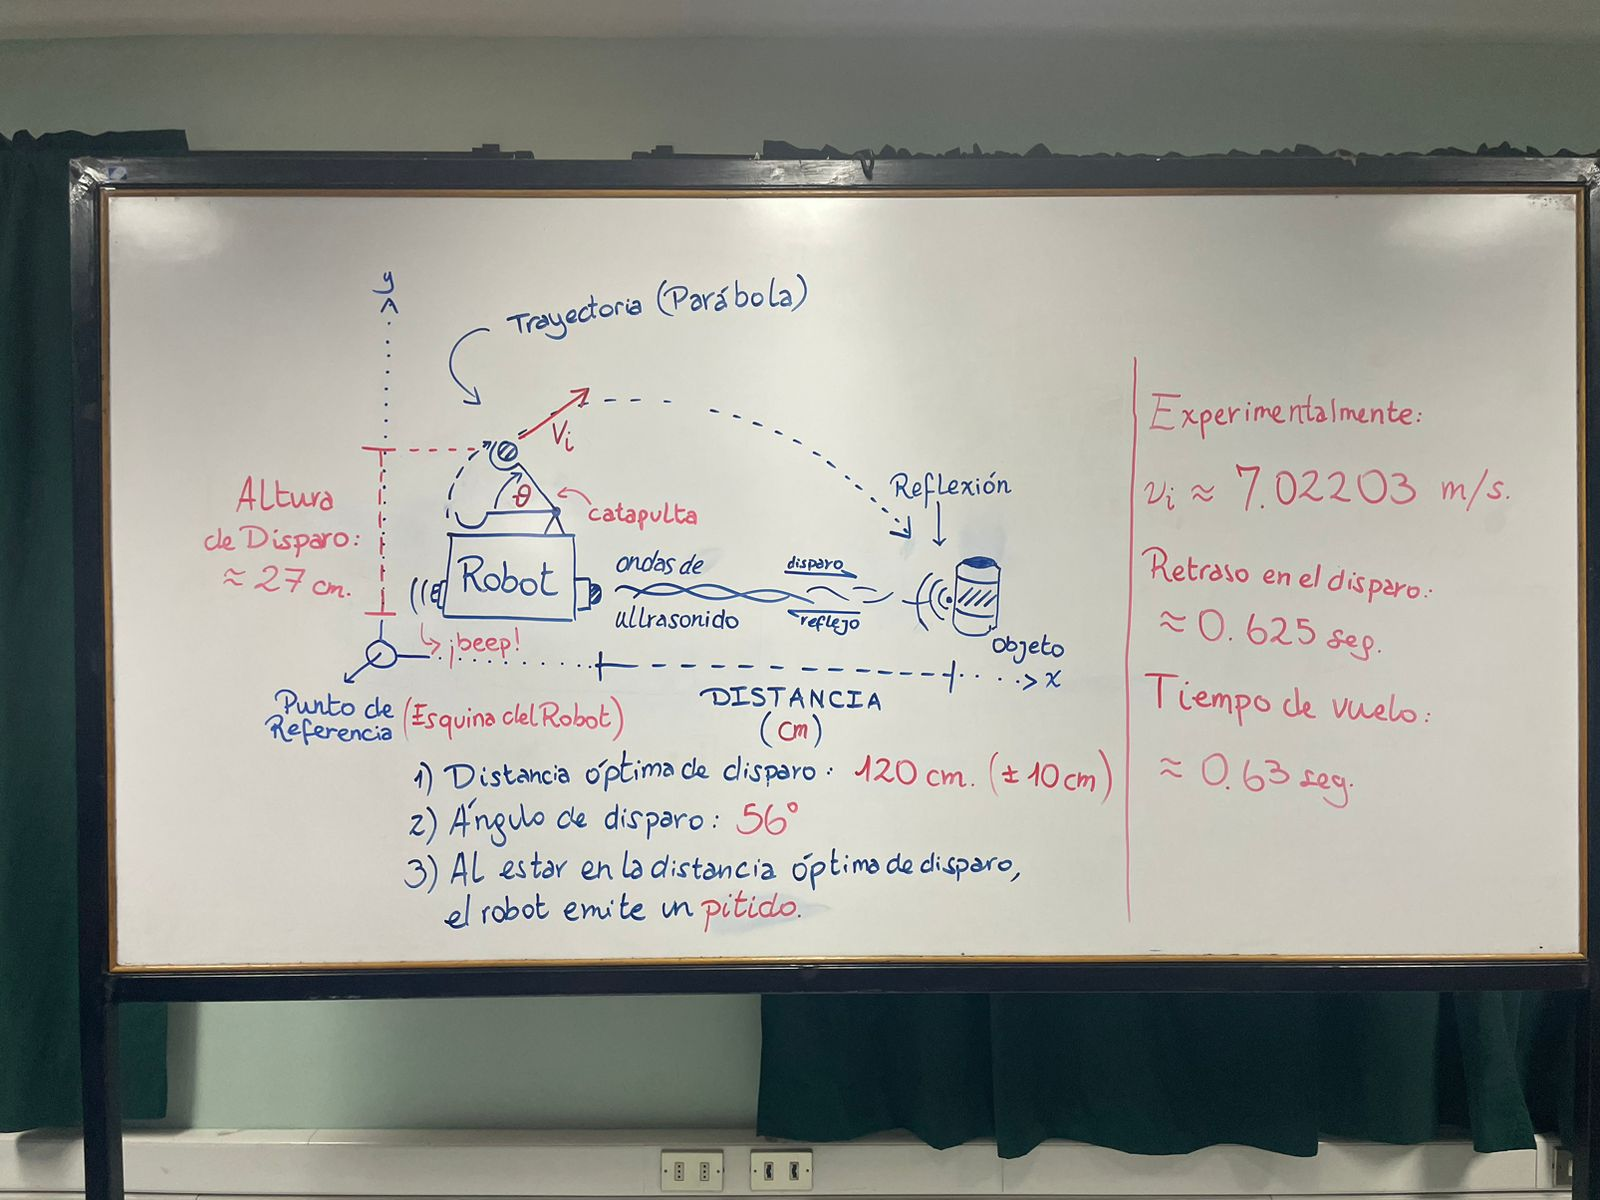 y
Trayectoria (Parábola)
Vi
Altura
de Disparo:
≈ 27 cm.
θ
catapulta
Robot
ondas de
ultrasonido
disparo
reflejo
Reflexión
Objeto
¡beep!
x
Punto de
Referencia
(Esquina del Robot)
DISTANCIA
(cm)
1) Distancia óptima de disparo: 120 cm. (± 10 cm)
2) Ángulo de disparo: 56°
3) Al estar en la distancia óptima de disparo,
el robot emite un pitido.
Experimentalmente:
vi ≈ 7.02203 m/s.
Retraso en el disparo:
≈ 0.625 seg.
Tiempo de vuelo:
≈ 0.63 seg.